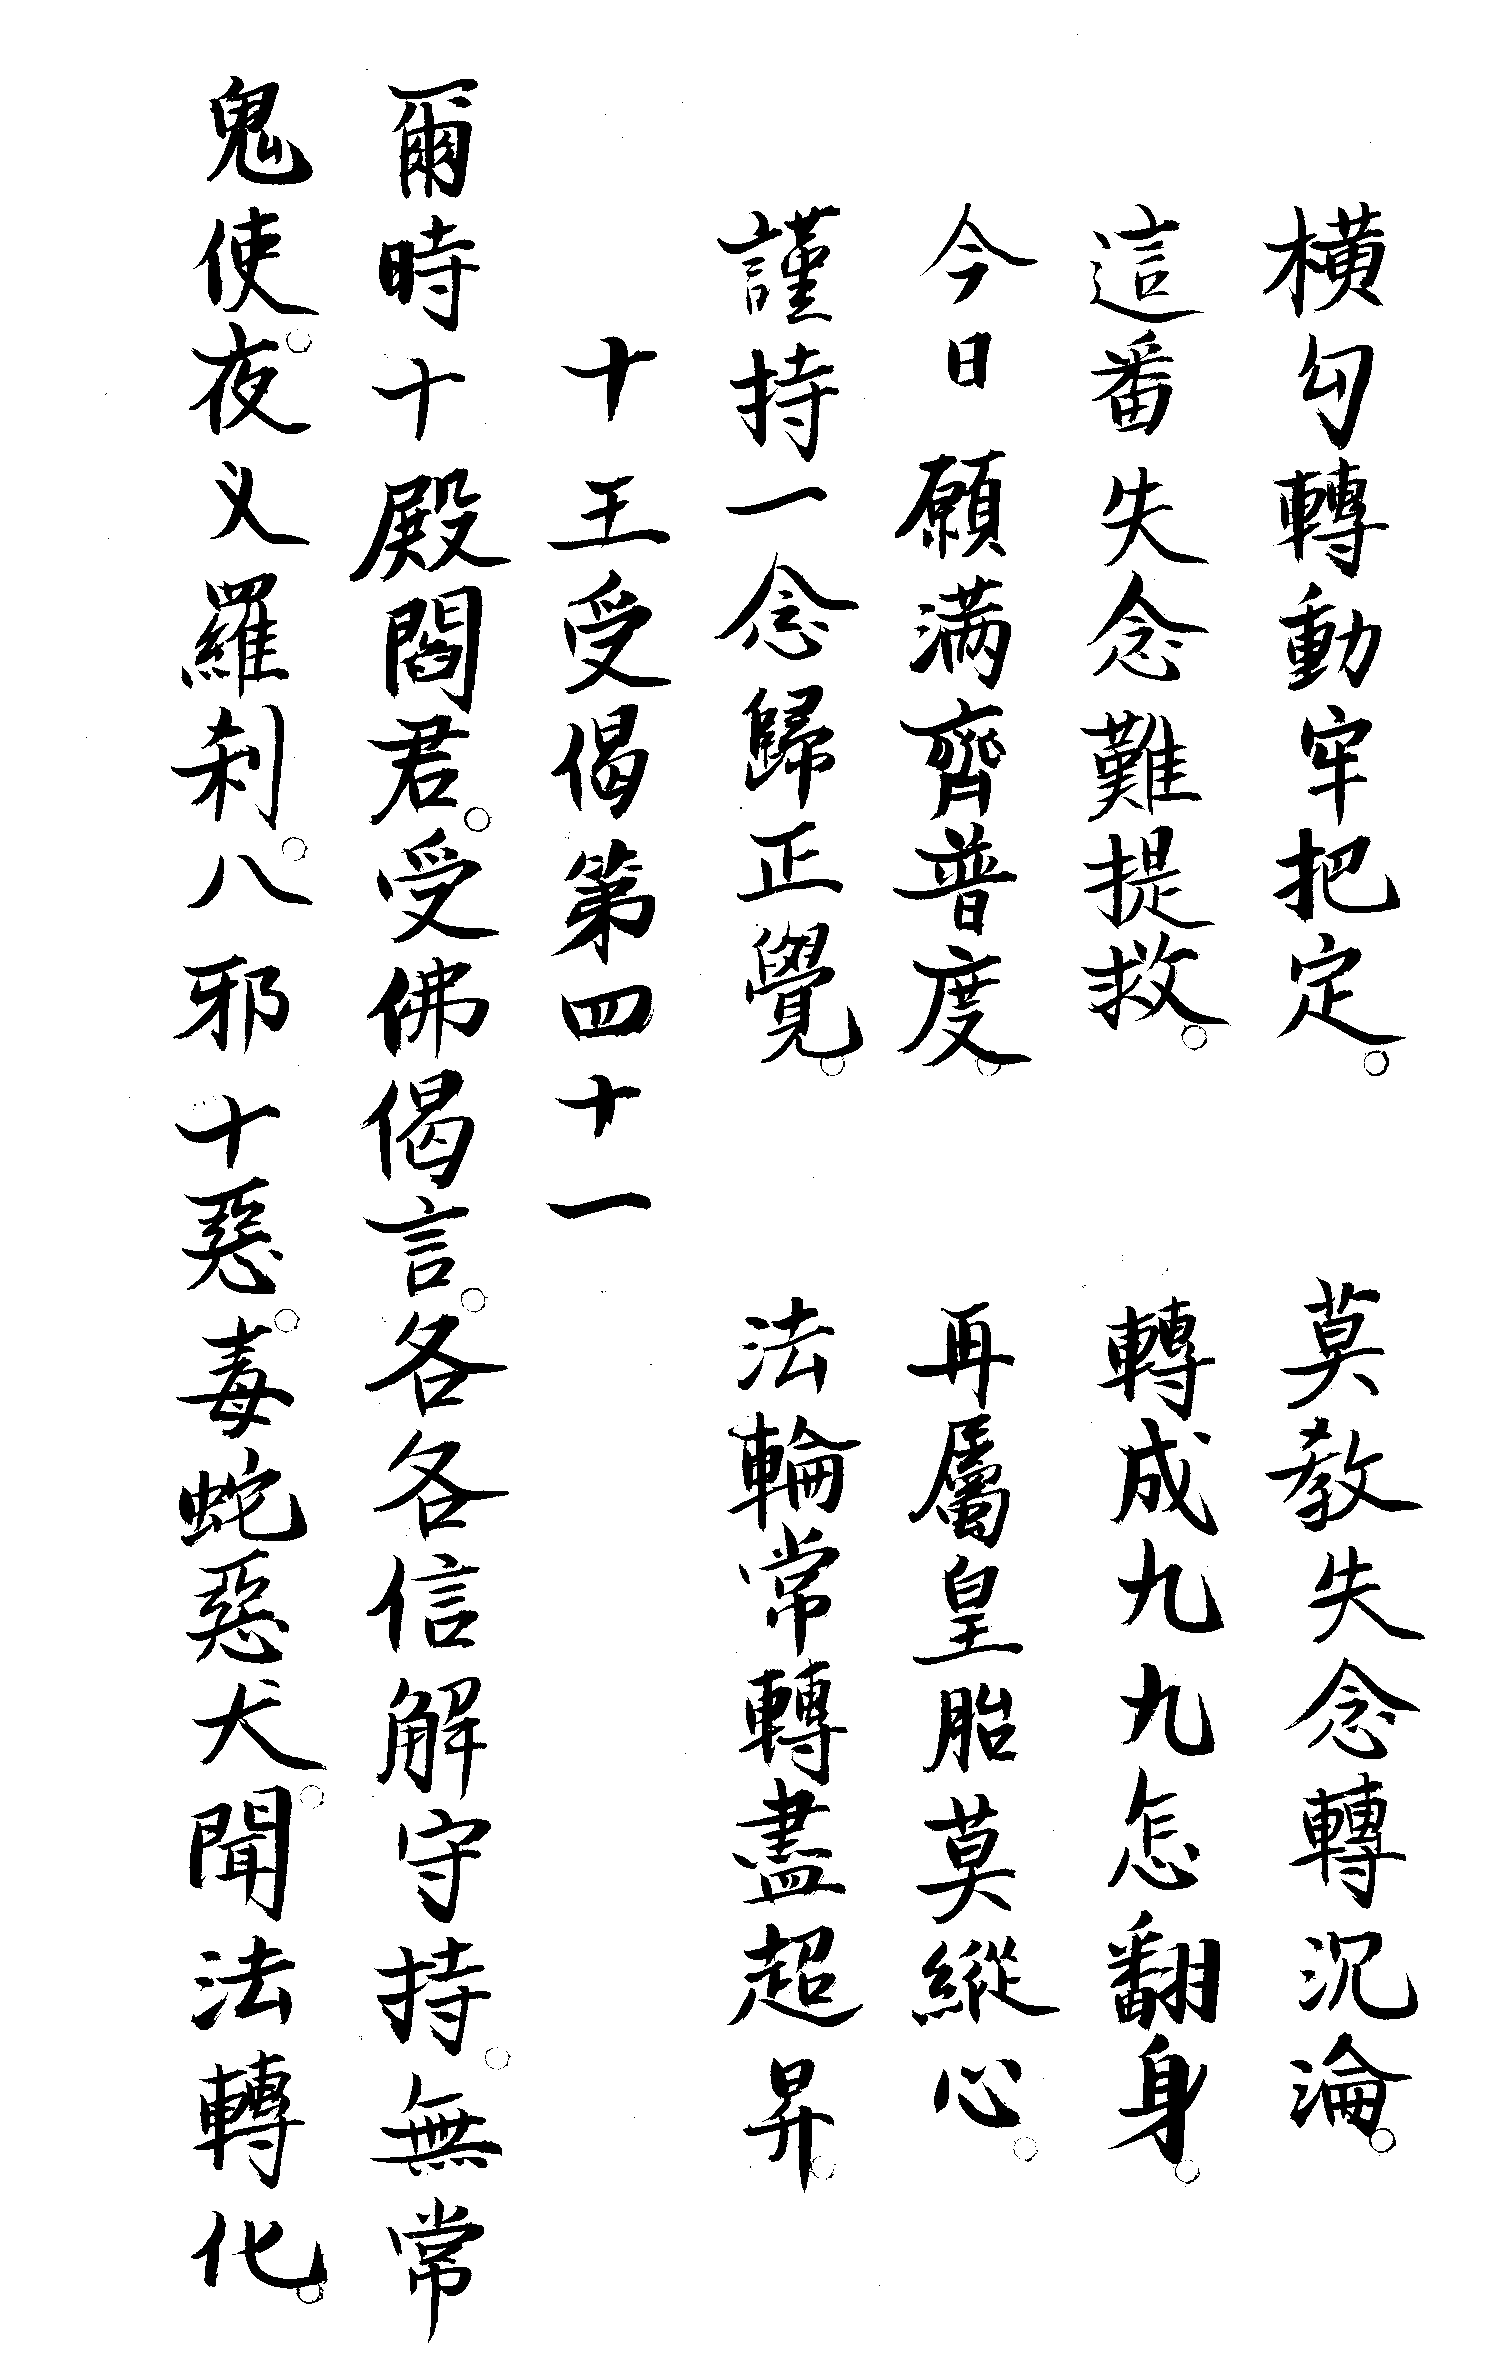 橫勾轉動牢把定。　莫教失念轉沉淪。
這番失念難提救。　轉成九九怎翻身。
今日願滿齊普度。　再屬皇胎莫縱心。
謹持一念歸正覺。　法輪常轉盡超昇。
十王受偈第四十一
爾時十殿閻君。受佛偈言。各各信解守持。無常
鬼使。夜义羅刹。八邪十惡。毒蛇惡犬。聞法轉化。